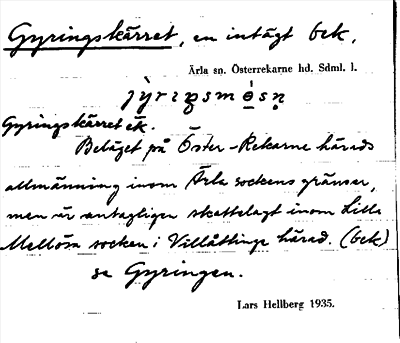 Gyringskärret, en intägt bek.
Ärla sn. Österrekarne hd. Sdml. l.
Gyringskärret ek.
Beläget på Öster-Rekarne härads
allmänning inom Ärla sockens gränser,
men är antagligen skattelagt inom Lilla
Mellösa socken i Villåttinge härad. (bek)
se Gyringen.
Lars Hellberg 1935.